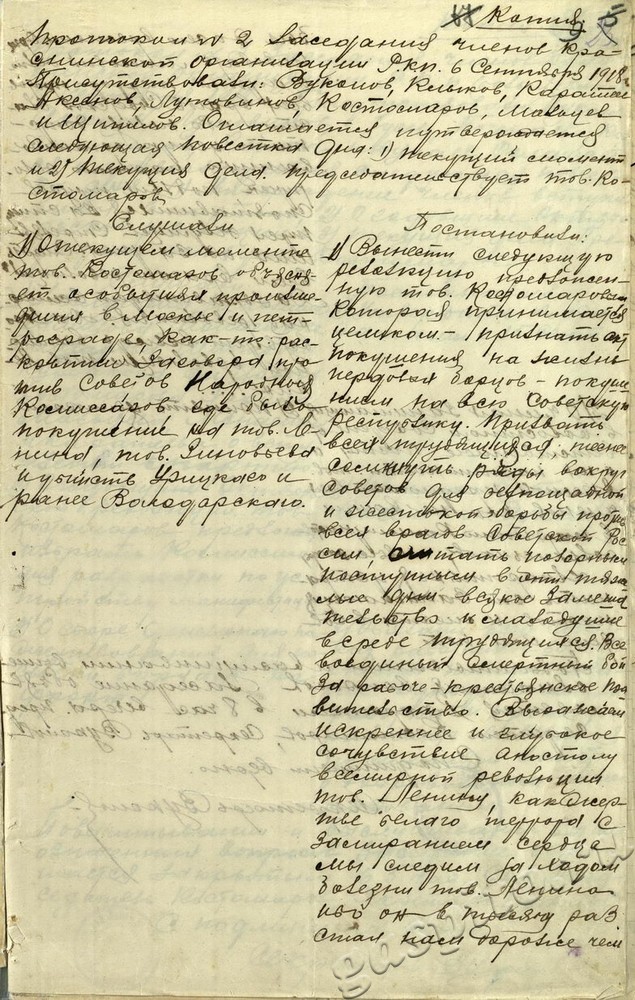 Копия 5
Протокол № 2 Заседания членов Кра-
снинской организации Ркп. 6 Сентября 1918
Присутствовали: Вуколов, Клыков,
Аксенов, Лутовинов, Костомаров, Мальцев
и Шипилов. Оглашается и утверждается
следующая повестка дня: 1) текущий момент
и 2) текущия дела. Председательствует тов. Ко-
стомаров
Слушали
1) О текущем моменте
тов. Костомаров объясня-
ет о событиях происше-
дших в Москве и Пет-
рограде, как-то: рас-
крытии Заговора про-
тив Советов Народных
Комиссаров, где было
покушение на тов. Ле-
нина, тов. Зиновьева
и убийсть Урицкаго и
ранее Володарскаго.
Постановили:
1) Вынести следующую
резолюцию предложен-
ную тов. Костомаровым
которая принимается
целиком. – признать
покушения на жизнь
передовых борцов – покуше
нием на всю Советскую
республику. Призвать
всех трудящихся, теснее
сомкнуть ряды вокруг
Советов для беспощадной
и жестокой борьбы против
всех врагов Советской Рос
сии, считать позорным
поступным в эти тяже
лые дни всякое замеша
тельство и малодушие
в среде трудящихся. Все
воединый смертный бой
За рабоче-крестьянское пра
вительство. Выражаем
искреннее и глубокое
сочувствие апостолу
всемирной революции
тов. Ленину, как жер-
тве белаго террора с
замиранием сердца
мы следим за ходом
болезни тов. Ленина
ибо он в тысячу раз
стал нам дороже чем